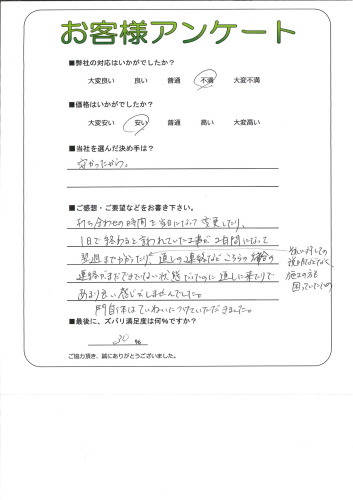 お客様アンケート
■弊社の対応はいかがでしたか?
大変良い 良い 普通 不満 大変不満
■価格はいかがでしたか?
大変安い 安い 普通 高い 大変高い
■当社を選んだ決め手は?
安かったから。
■ご感想・ご要望などをお書き下さい。
打ち合わせの時間を当日になって変更したり、
1日で終わると言われていた工事が2日間になって
翌週までかかったり、直しの連絡などこちらの都合の
連絡がまだできてない状態だったのに直しに来たりで
あまり良い感じがしませんでした。
門自体はていねいにつけていただきました。
施工の方も
困っていた
■最後に、ズバリ満足度は何%ですか?
30 %
ご協力頂き、誠にありがとうございました。